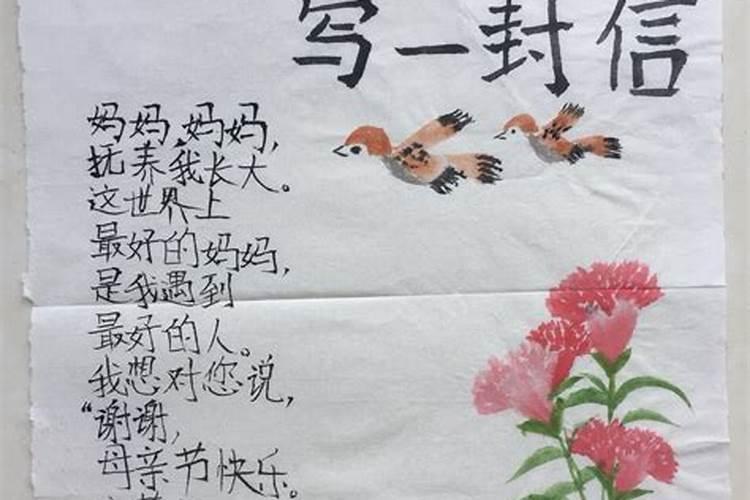 写一封信
妈妈,妈妈,
抚养我长大。
这世界上
最好的妈妈,
是我遇到
最好的人。
我想对您说,
“谢谢,
母亲节快乐。